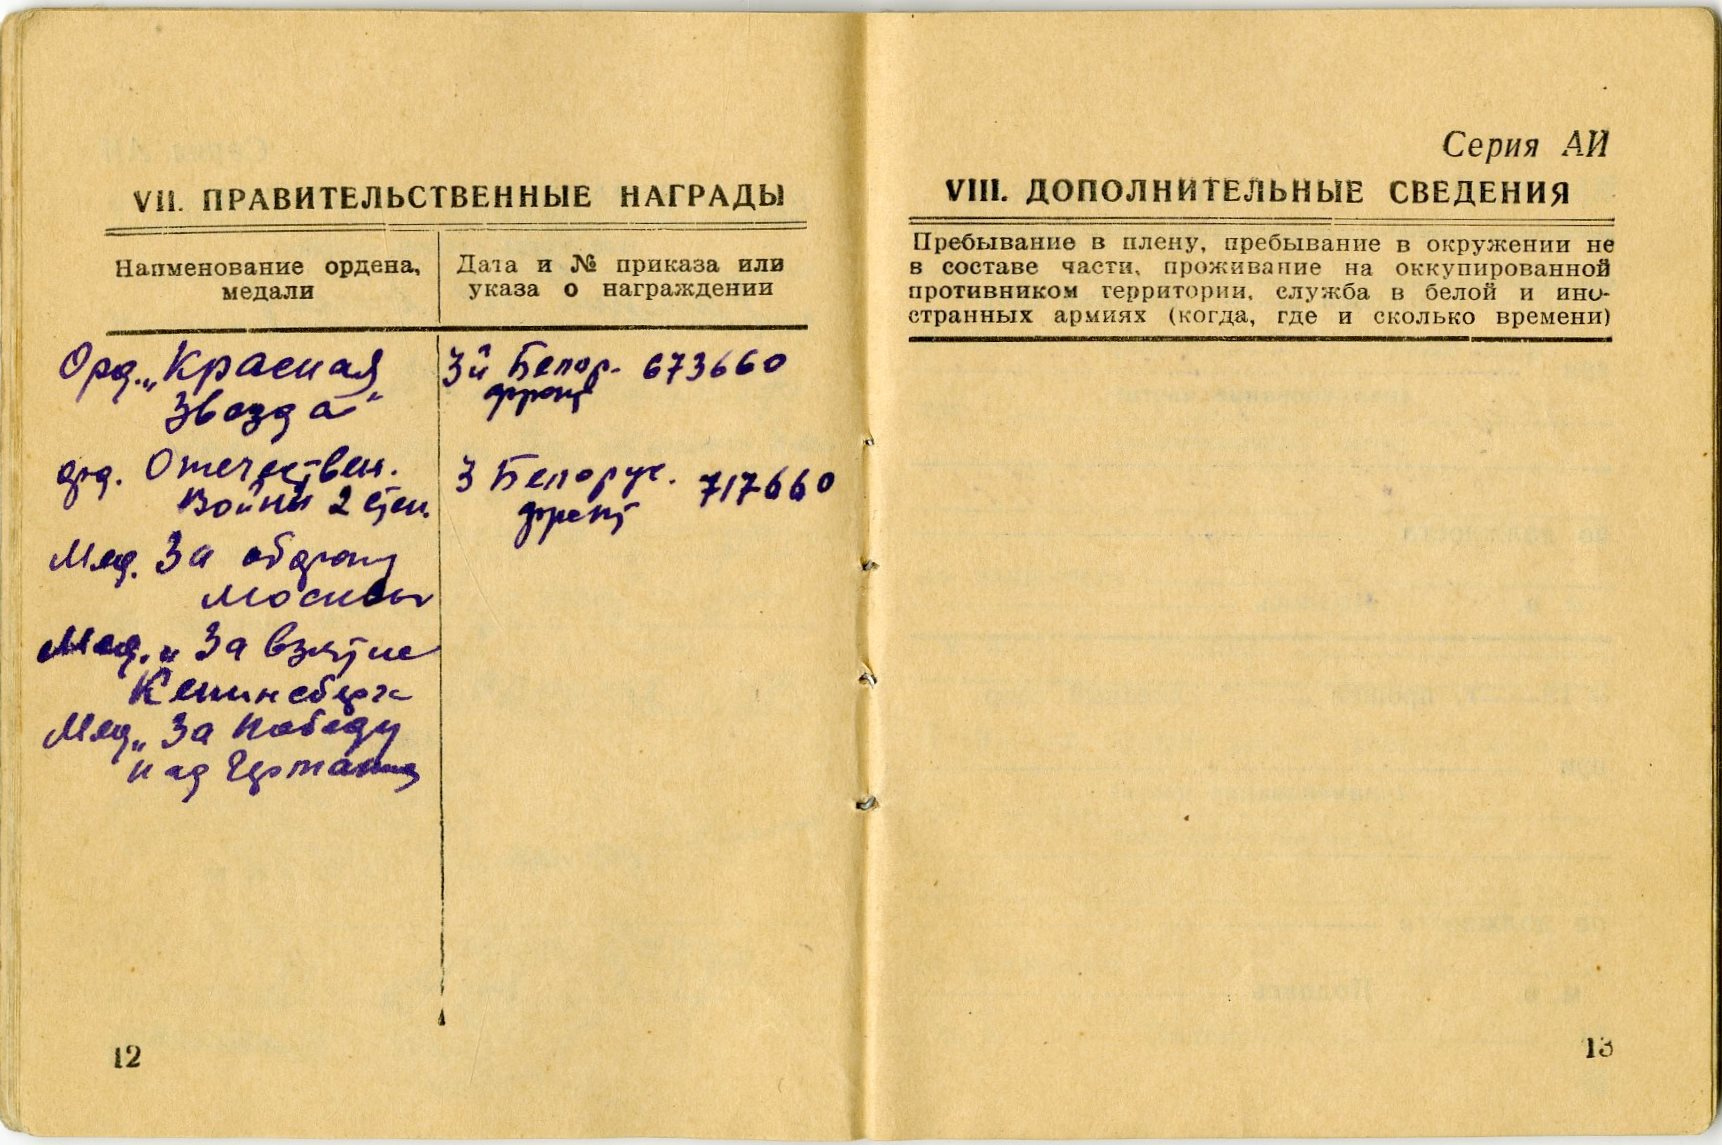 VII. ПРАВИТЕЛЬСТВЕННЫЕ НАГРАДЫ
Наименование ордена,
медали
Дата и № приказа или
указа о награждении
Орд. „Красная
Звезда“
3й Белор. 673660
фронт
орд. Отечествен.
Войны 2 степ.
3 Белорус. 717660
фронт
Мед. За оборону
Москвы
Мед. „За взятие
Кенигсберга
Мед „За победу
над Германией
12
Серия АИ
VIII. ДОПОЛНИТЕЛЬНЫЕ СВЕДЕНИЯ
Пребывание в плену, пребывание в окружении не
в составе части, проживание на оккупированной
противником территории, служба в белой и ино-
странных армиях (когда, где и сколько времени)
13